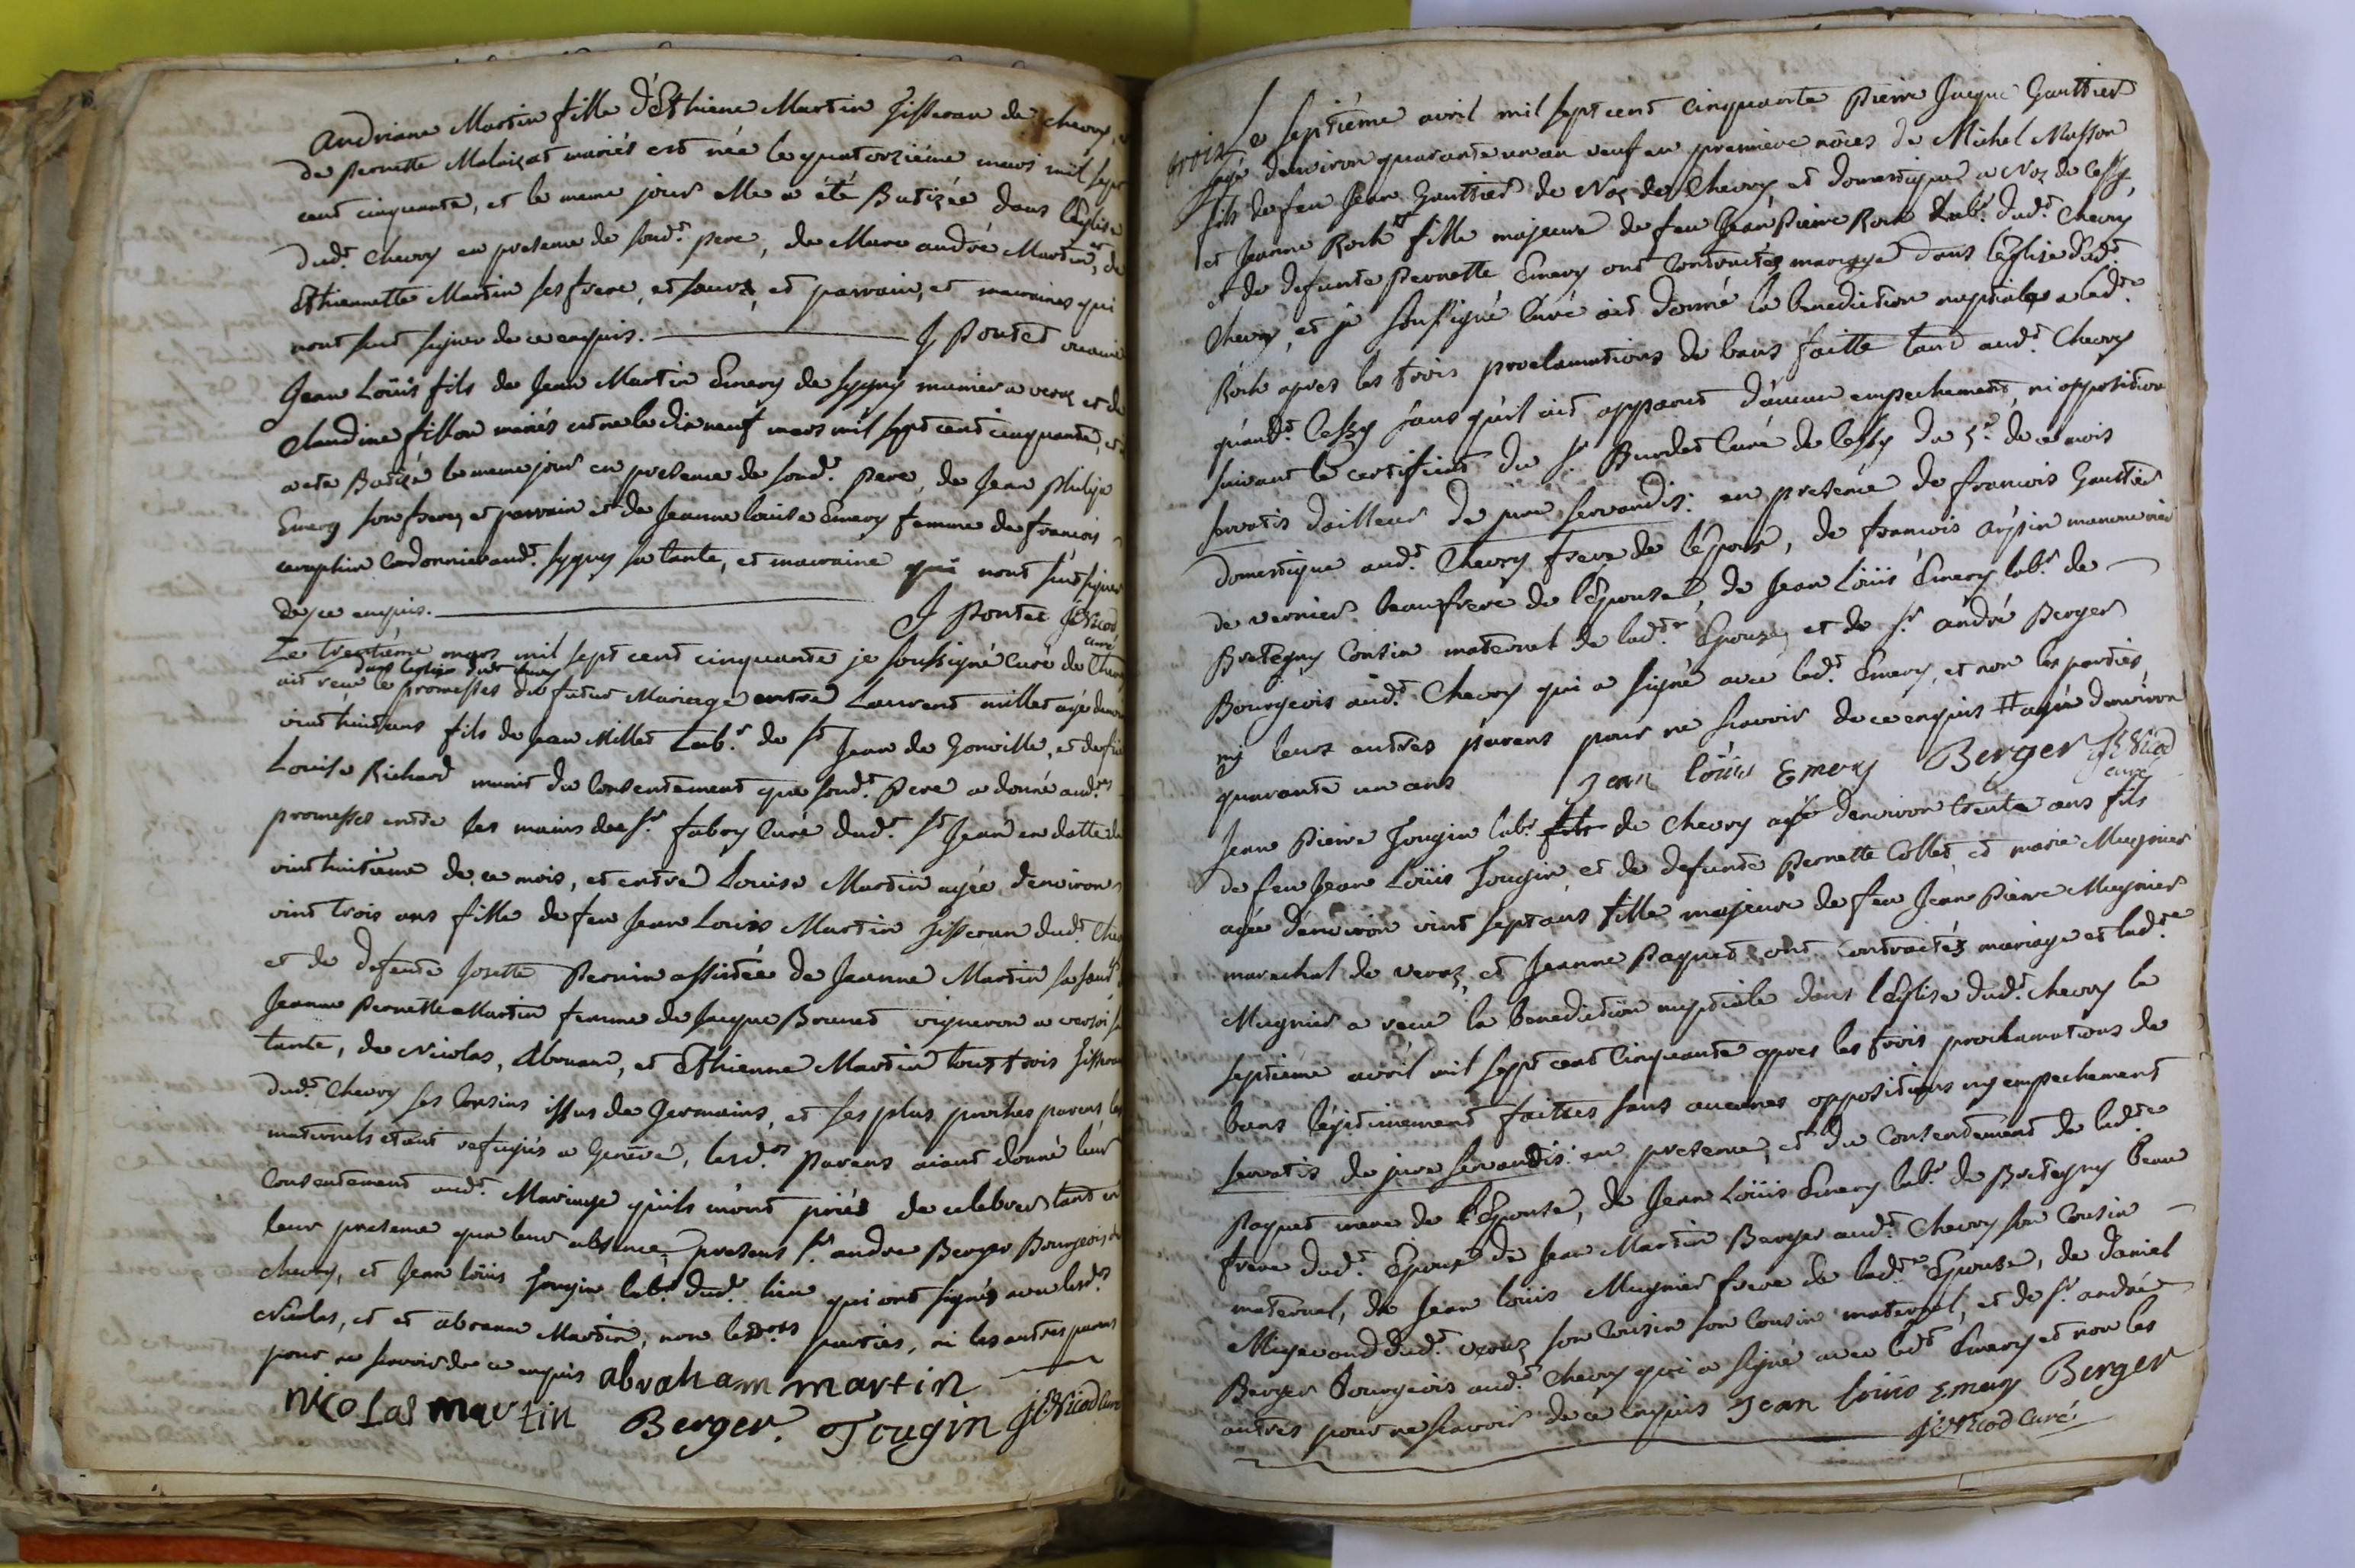 Andriane Martin fille d'Ethiene Martin Tisseran de chevry,
de Pernette Malaizat mariés est née le quatorziéme mars mil sept
cent cinquante, et le meme jour elle a été Batizée dans l'Eglise
dud.t Chevry en presence de sond.t pere, de Marc andré Martin, et de
Ethiennette Martin ses frere, et soeur, et parrain, et maraine qui
nont sceut signer de ce enquis. J Pontet vicaire
Jean Loüis fils de Jean Martin Emery de sygny munier a veraz et de
Claudine fillon mariés est ne le dix neuf mars mil sept cent cinquante, et
a ete Batizé le meme jour en presence de sond.t Pere, de Jean philipe
Emery son frere, et parrain et de Jeanne louise Emery femme de francois
ceraphin Cordonnier aud.t sygny sa tante, et maraine qui nont sceut signer
de ce enquis. J Pontet J C Nicod
curé
Le trentiéme mars mil sept cent cinquante je soussigné Curé de Chevry
dans leglise dud.t Chevry
ait reçu le promesses du futur Mariage entre Laurent millet agé denviron
vint huit ans fils de Jean Millet Lab.r de S.t Jean de Gonville, et de feu
Louise Richard munit du Consentement que sond.t Pere a donné aud.tes
promesses entre les mains de s.r fabry Curé dud.t S.t Jean en datte du
vint huitieme de ce mois, et entre Louise Martin agée denviron
vint trois ans fille de feu Jean Louis Martin Tisseran dud.t Chevry
et de defunte Josette Pernin assistée de Jeanne Martin sa soeur
Jeanne Pernette Martin femme de Jacque Brunet vigneron a versoi sa
tante, de Nicolas, Abraam, et Ethienne Martin tous trois Tisseran
dud.t Chevry ses Cousins issus de Germains, et ses plus proches parens les
maternels etant refugiés a Genêve, lesd.ts Parens aiant donné leur
Consentement aud.t Mariage quils m'ont priés de celebrer tant en
leur presence que leur absence, presens s.r andre Berger Bourgeois de
chevry, et Jean loüis Tougin lab.r dud.t lieu qui ont signés avec lesd.ts
Nicolas, et et abraam Martin, non lesd.tes parties, ni les autres parens
pour ne scavoir de ce enquis abraham martin
nicolas martin Berger. Tougin J C Nicod Curé
trois Le septiéme avril mil sept cent cinquante Pierre Jacque Gauttier
agé denviron quarante un an veuf en premiere nôces de Michel Masson
fils de feu Jean Gauttier de Noz de Chevry et domestique a Noz de Cessy,
et Jeanne Roch # fille majeure de feu Jean Pierre Roch lab.r dud.t Chevry
et de defunte Pernette Emery ont Contractés mariage dans l'Eglise dud.t
Chevry, et je soussigné Curé ait donné la benediction nuptiale a lad.te
Roch apres les trois proclamations de bans faitte tant aud.t Chevry
qu'aud.t Cessy sans qu'il ait apparut d'aucun empechement, ni opposition
suivant le certificat du s.r Burdet Curé de Cessy du 5.e de ce mois
servatis dailleur de jure servandis: en presence de francois Gauttier
domestique aud.t Chevry frere de l'Epoux, de francois arpin manouvrier
de vernier beaufrere de l'Epouse, de Jean Loüis Emery lab.r de
Bretegny Cousin maternel de lad.te Epouse, et de s.r andré Berger
Bourgeois aud.t Chevry qui a signé avec led.t Emery, et non les parties,
ny leurs autres parens pour ne scavoir de ce enquis # agée denviron
quarante un ans Jean loüis Emery Berger J C Nicod
curé
Jean Pierre Tougin lab.r de Chevry agé denviron trente ans fils
de feu Jean Loüis Tougin et de defunte Pernette Collet et marie Mugnier
agée denviron vint sept ans fille majeure de feu Jean Pierre Mugnier
marechal de veraz, et Jeanne Paquet ont contractés mariage et lad.te
Mugnier a reçue la benediction nuptiale dans l'Eglise dud.t chevry le
septiéme avril mil sept cent cinquante apres les trois proclamations de
bans légitimement faittes sans aucunes oppositions ny empechement
servatis de jure servandis: en presence, et du Consentement de lad.te
Paquet mere de l'Epouse, de Jean Loüis Emery lab.r de Bretegny beau
frere dud.t Epoux de Jean Martin Berger aud.t Chevry son Cousin
maternel, de Jean loüis Mugnier frere de lad.te Epouse, de daniel
dud.t veraz son Cousin son Cousin maternel, et de s.r andré
Berger Bourgeois aud.t Chevry qui a signé avec led.t Emery et non les
autres pour ne scavoir de ce enquis Jean loüis Emery Berger
J C Nicod Curé